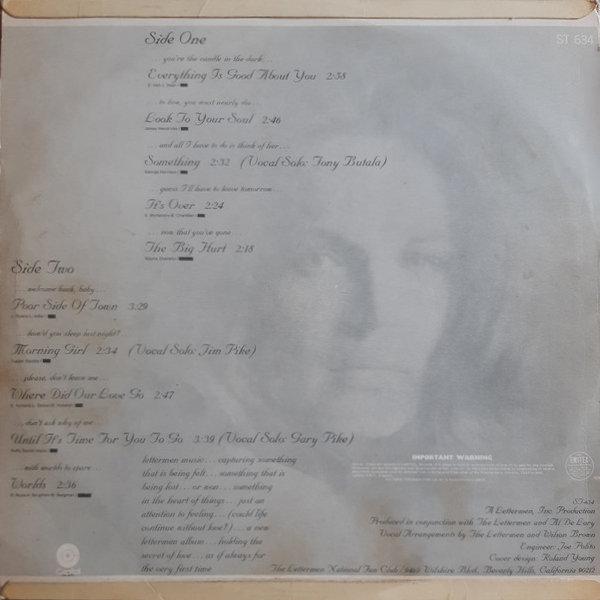 ST 634
Side One
...you're the candle in the dark...
Everything Is Good About You 2:38
...to live, you must nearly die...
Look To Your Soul 2:46
...and all I have to do is think of her...
Something 2:32 (Vocal Solo: Tony Butala)
George Harrison
...guess I'll have to leave tomorrow...
It's Over 2:24
...now that you've gone...
The Big Hurt 2:18
Side Two
...welcome back, baby...
Poor Side Of Town 3:29
...how'd you sleep last night?
Morning Girl 2:34 (Vocal Solo: Jim Pike)
...please, don't leave me...
Where Did Our Love Go 2:47
...don't ask why of me...
Until It's Time For You To Go 3:39 (Vocal Solo: Gary Pike)
...with worlds to spare...
Worlds 2:36
lettermen music... capturing something
that is being felt... something that is
being lost... or won... something
in the heart of things... just an
attention to feeling... (could life
continue without love?)... a new
lettermen album... holding the
secret of love... as if always for
the very first time
IMPORTANT WARNING
ST-634
A Lettermen, Inc. Production
Produced in conjunction with The Lettermen and Al De Lory
Vocal Arrangements by The Lettermen and Vilson Brown
Engineer: Joe Polito
Cover design: Roland Young
The Lettermen National Fan Club / Wilshire Blvd., Beverly Hills, California 90212